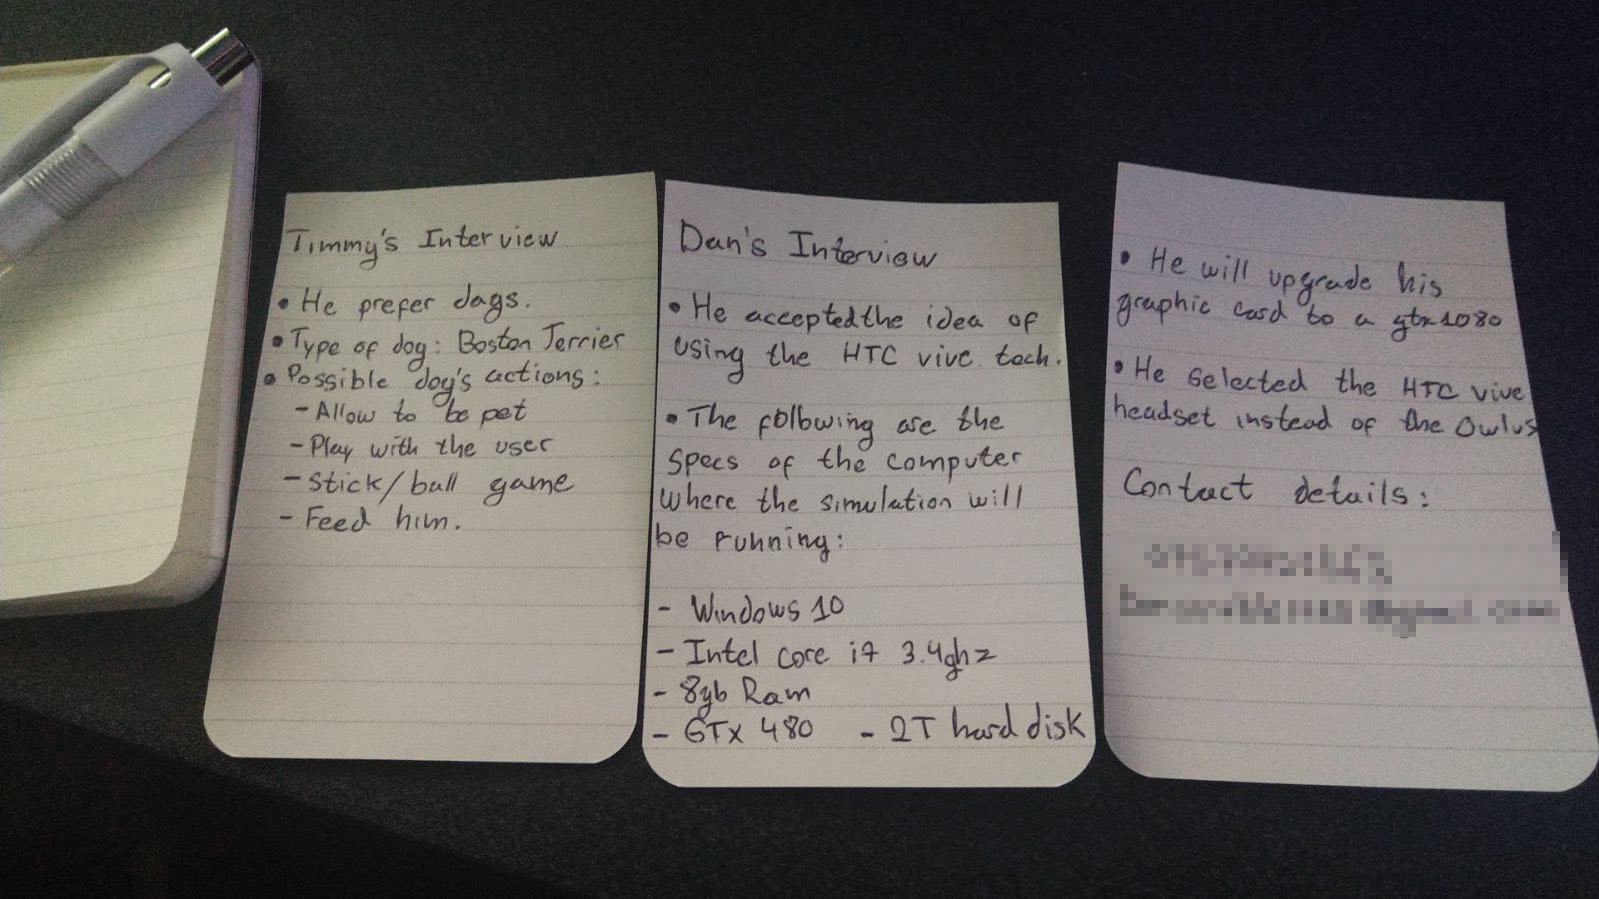 Timmy's Interview
• He prefer dogs.
• Type of dog: Boston Terrier
• Possible dog's actions:
- Allow to be pet
- Play with the user
- Stick/ball game
- Feed him.
Dan's Interview
• He accepted the idea of
using the HTC vive tech.
• The following are the
specs of the computer
where the simulation will
be running:
- Windows 10
- Intel core i7 3.4ghz
- 8gb Ram
- GTX 480 - 2T hard disk
• He will upgrade his
graphic card to a gtx1080
• He selected the HTC vive
headset instead of the Owlus
Contact details: